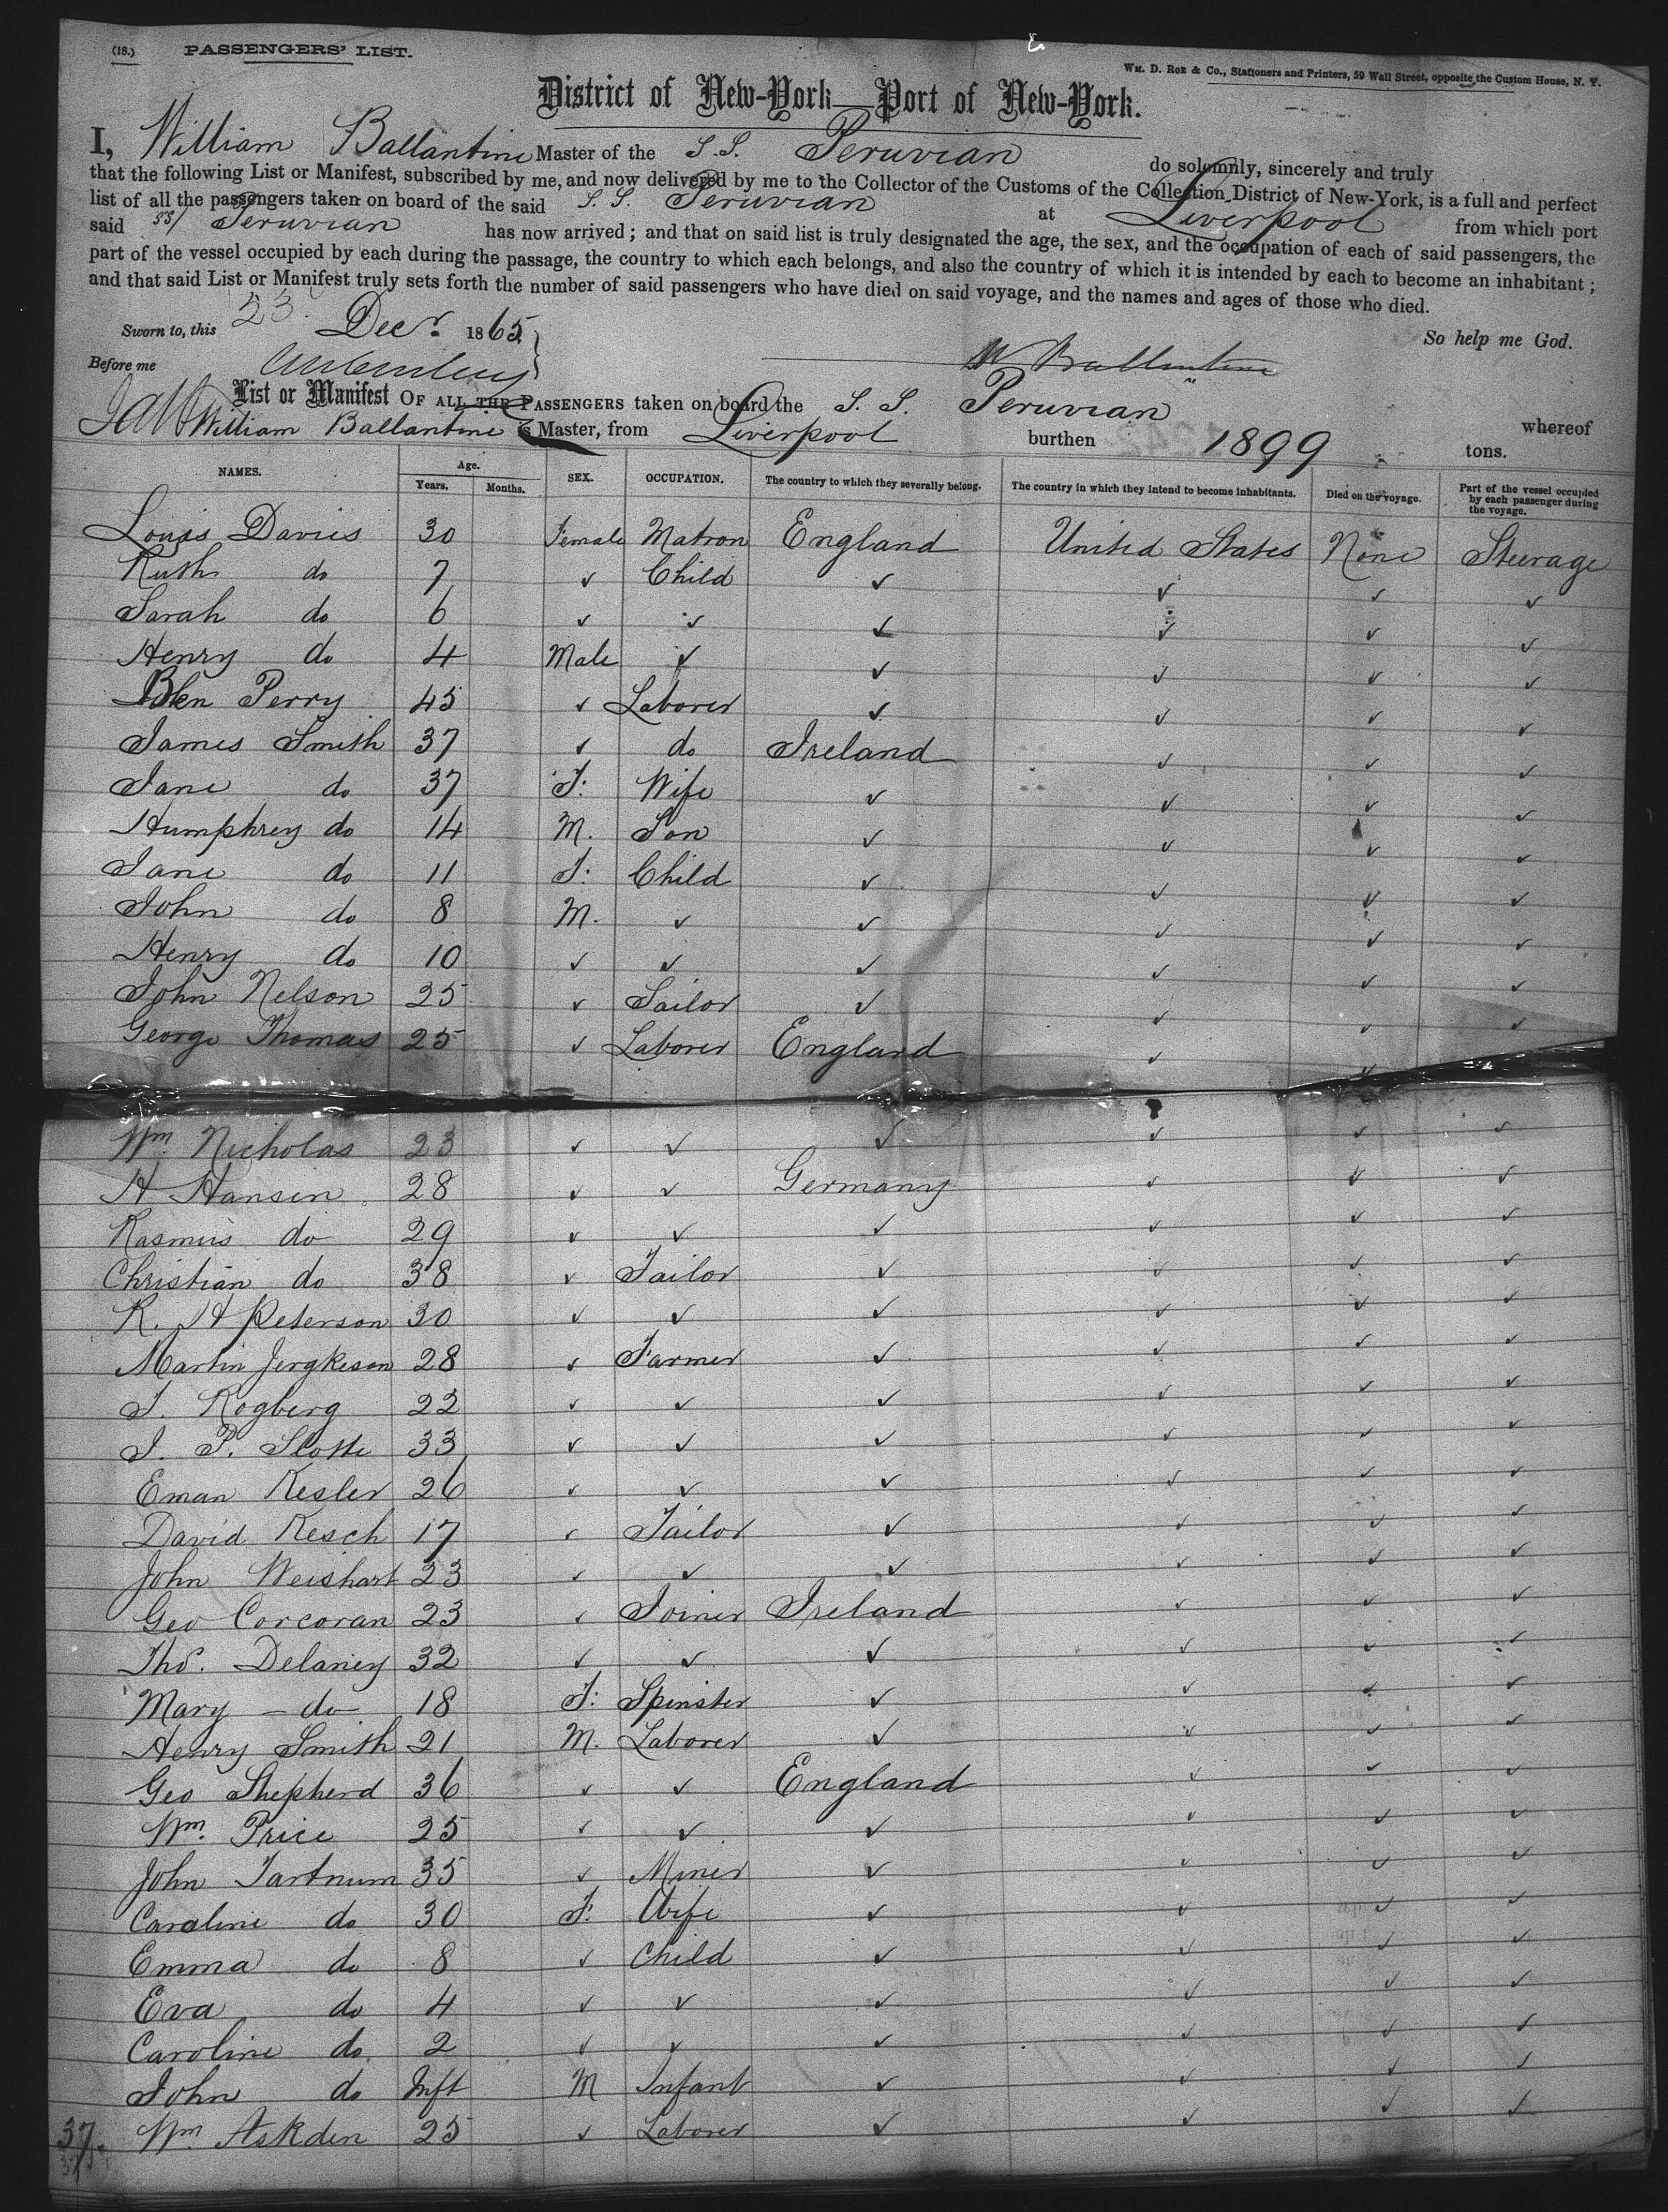 (18.) PASSENGERS' LIST.
WM. D. ROE & Co., Stationers and Printers, 59 Wall Street, opposite the Custom House, N. Y.
District of New-York—Port of New-York.
I, William Ballantine Master of the S.S. Peruvian do solemnly, sincerely and truly
that the following List or Manifest, subscribed by me, and now delivered by me to the Collector of the Customs of the Collection District of New-York, is a full and perfect
list of all the passengers taken on board of the said S.S. Peruvian at Liverpool from which port
said SS/ Peruvian has now arrived; and that on said list is truly designated the age, the sex, and the occupation of each of said passengers, the
part of the vessel occupied by each during the passage, the country to which each belongs, and also the country of which it is intended by each to become an inhabitant;
and that said List or Manifest truly sets forth the number of said passengers who have died on said voyage, and the names and ages of those who died.
So help me God.
Sworn to, this 23 Decr. 1865
Before me
W Ballantine
List or Manifest OF ALL THE PASSENGERS taken on board the S. S. Peruvian whereof
William Ballantine is Master, from Liverpool burthen 1899 tons.
NAMES. Age. Years. Months. SEX. OCCUPATION. The country to which they severally belong. The country in which they intend to become inhabitants. Died on the voyage. Part of the vessel occupied by each passenger during the voyage.
Louis Davies 30 Female Matron England United States None Steerage
Ruth do 7 ✓ Child ✓ ✓ ✓ ✓
Sarah do 6 ✓ ✓ ✓ ✓ ✓ ✓
Henry do 4 Male ✓ ✓ ✓ ✓ ✓
Perry 45 ✓ Laborer ✓ ✓ ✓ ✓
James Smith 37 ✓ do Ireland ✓ ✓ ✓
Jane do 37 F: Wife ✓ ✓ ✓ ✓
Humphrey do 14 M. Son ✓ ✓ ✓ ✓
Jane do 11 F: Child ✓ ✓ ✓ ✓
John do 8 M. ✓ ✓ ✓ ✓ ✓
Henry do 10 ✓ ✓ ✓ ✓ ✓ ✓
John Nelson 25 ✓ Sailor ✓ ✓ ✓ ✓
George Thomas 25 ✓ Laborer England ✓ ✓
Wm. Nicholas 23 ✓ ✓ ✓ ✓ ✓ ✓
H Hansen 28 ✓ ✓ Germany ✓ ✓ ✓
Rasmus do 29 ✓ ✓ ✓ ✓ ✓ ✓
Christian do 38 ✓ Tailor ✓ ✓ ✓ ✓
R. H Peterson 30 ✓ ✓ ✓ ✓ ✓ ✓
Martin Jergkeson 28 ✓ Farmer ✓ ✓ ✓ ✓
Rogberg 22 ✓ ✓ ✓ ✓ ✓ ✓
P. 33 ✓ ✓ ✓ ✓ ✓ ✓
Eman Kesler 26 ✓ ✓ ✓ ✓ ✓ ✓
David Resch 17 ✓ Tailor ✓ ✓ ✓ ✓
John Weishart 23 ✓ ✓ ✓ ✓ ✓ ✓
Geo Corcoran 23 ✓ Joiner Ireland ✓ ✓ ✓
Thos. Delaney 32 ✓ ✓ ✓ ✓ ✓ ✓
Mary — do 18 F: Spinster ✓ ✓ ✓ ✓
Henry Smith 21 M. Laborer ✓ ✓ ✓ ✓
Geo Shepherd 36 ✓ ✓ England ✓ ✓ ✓
Wm. Price 25 ✓ ✓ ✓ ✓ ✓ ✓
John Tartnum 35 ✓ Miner ✓ ✓ ✓ ✓
Caroline do 30 F. Wife ✓ ✓ ✓ ✓
Emma do 8 ✓ Child ✓ ✓ ✓ ✓
Eva do 4 ✓ ✓ ✓ ✓ ✓ ✓
Caroline do. 2 ✓ ✓ ✓ ✓ ✓ ✓
John do Inft M Infant ✓ ✓ ✓ ✓
37. Wm. Askden 25 ✓ Laborer ✓ ✓ ✓ ✓